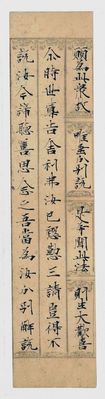 願為此衆故 唯垂分別說 是等聞此法 則生大歡喜
尒時世尊告舍利弗汝已慇懃三請豈得不
說汝今諦聽善思念之吾當為汝分別解說